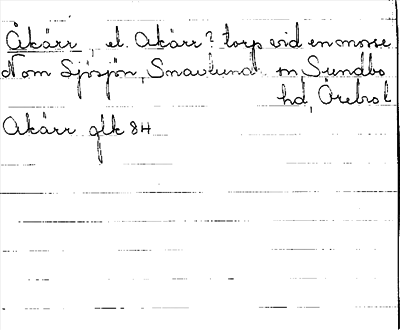 Åkärr, el. Akärr? torp vid en mosse
N om Sjösjön, Snavlunda sn, Sundbo
hd, Örebro l
Akärr glk 84